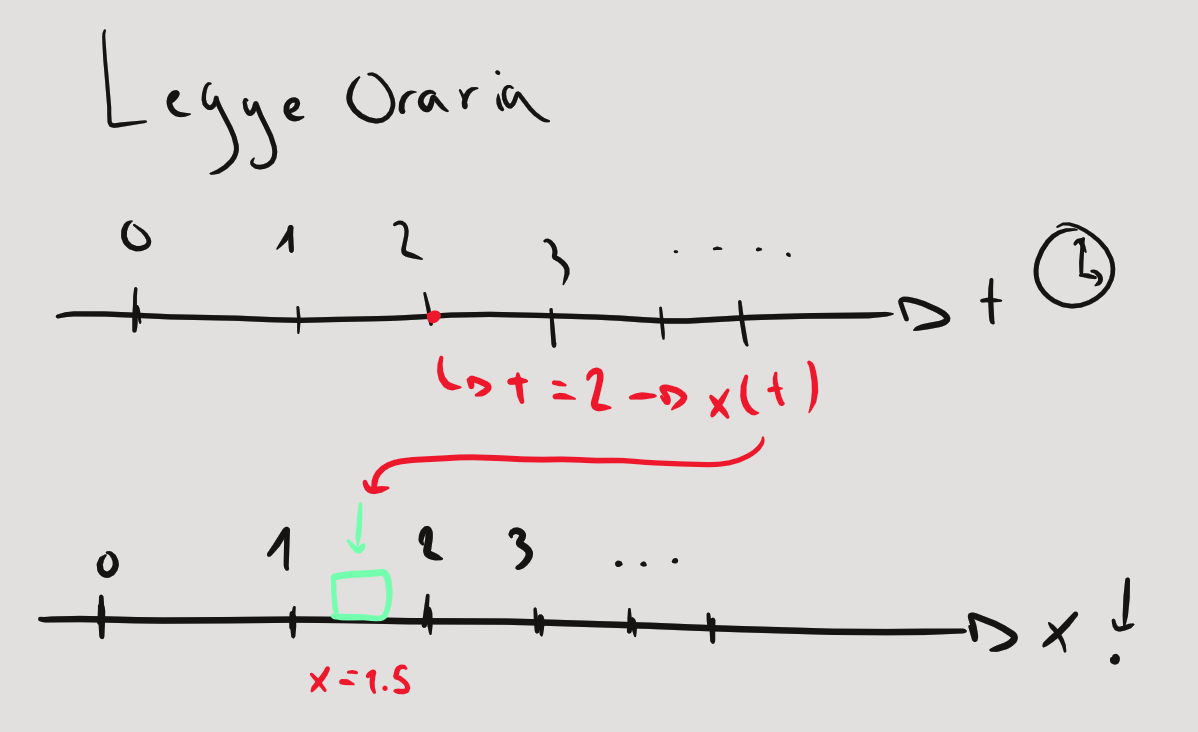 Legge Oraria
0 1 2 3 ....
t
t = 2 → x(t)
0 1 2 3 ...
x
x = 1.5